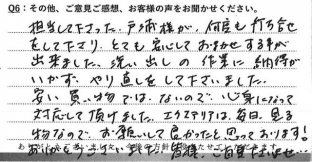 Q6：その他、ご意見ご感想、お客様の声をお聞かせください。
担当して下さった、戸浦様が、何度も打ち合せ
をして下さり、とても安心しておまかせする事が
出来ました。洗い出しの作業に納得が
いかず、やり直しをして下さいました。
安い買い物では、ないので、心身になって
対応して頂けました。エクステリアは、毎日、見る
物なので、お願いして良かったと思っております!
ありがとうございました。皆様、ご自愛下さいませ…